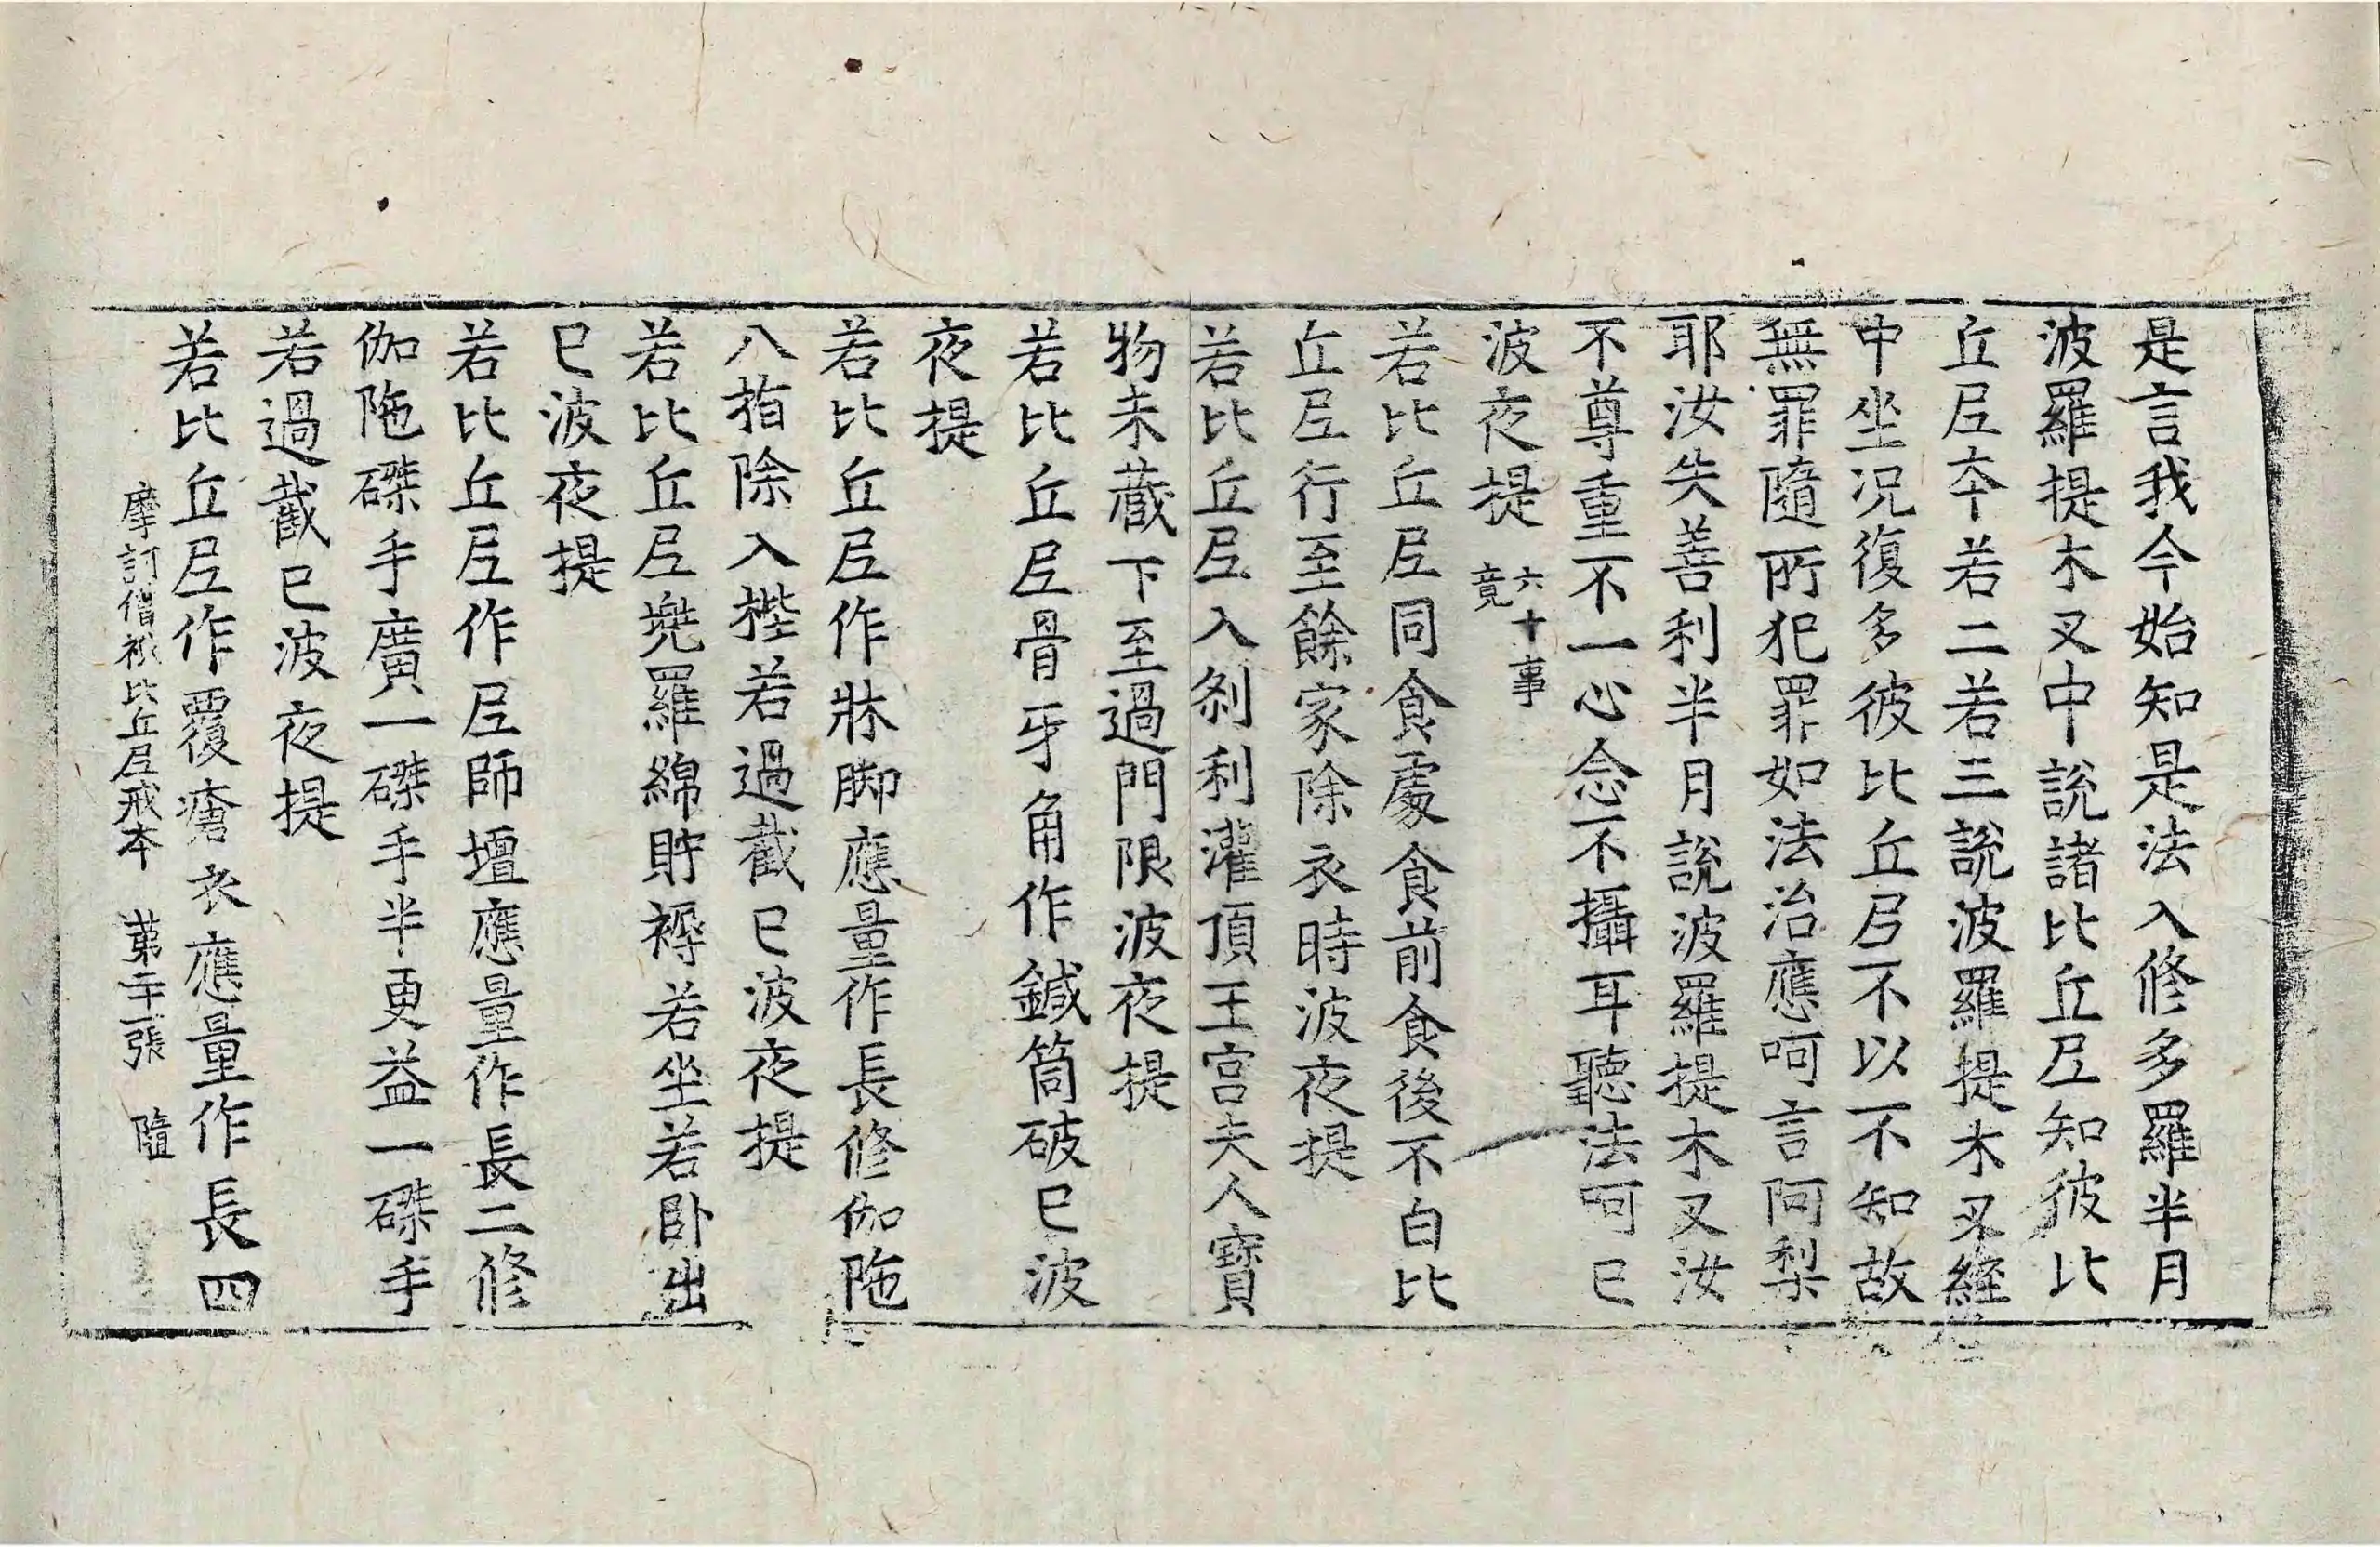 是言我今始知是法入修多羅半月
波羅提木叉中說諸比丘尼知彼比
丘尼夲若二若三說波羅提木叉經
中坐況復多彼比丘尼不以不知故
無罪隨所犯罪如法治應呵言阿梨
耶汝失善利半月說波羅提木叉汝
不尊重不一心念不攝耳聽法呵已
波夜提 六十事竟
若比丘尼同食處食前食後不白比
丘尼行至餘家除衣時波夜提
若比丘尼入刹利灌頂王宮夫人寶
物未藏下至過門限波夜提
若比丘尼骨牙角作鍼筒破已波
夜提
若比丘尼作牀脚應量作長修伽陁
八指除入梐若過截已波夜提
若比丘尼兠羅綿貯褥若坐若卧出
已波夜提
若比丘尼作尼師壇應量作長二修
伽陁磔手廣一磔手半更益一磔手
若過截已波夜提
若比丘尼作覆瘡衣應量作長四
摩訶僧祇比丘尼戒本 苐二十一張 隨